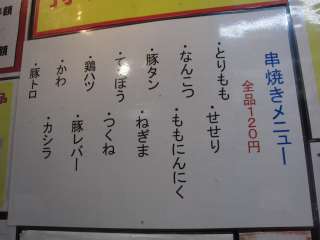 串焼きメニュー
全品120円
・とりもも
・せせり
・なんこつ
・ももにんにく
・豚タン
・ねぎま
・てっぽう
・つくね
・鶏ハツ
・豚レバー
・かわ
・カシラ
・豚トロ